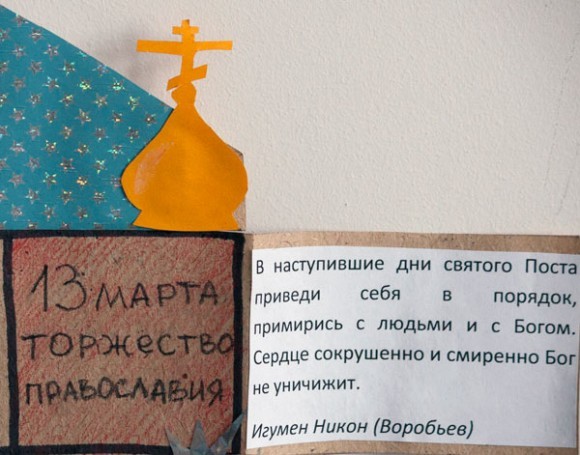 13 МАРТА
ТОРЖЕСТВО
ПРАВОСЛАВИЯ
В наступившие дни святого Поста
приведи себя в порядок,
примирись с людьми и с Богом.
Сердце сокрушенно и смиренно Бог
не уничижит.
Игумен Никон (Воробьев)